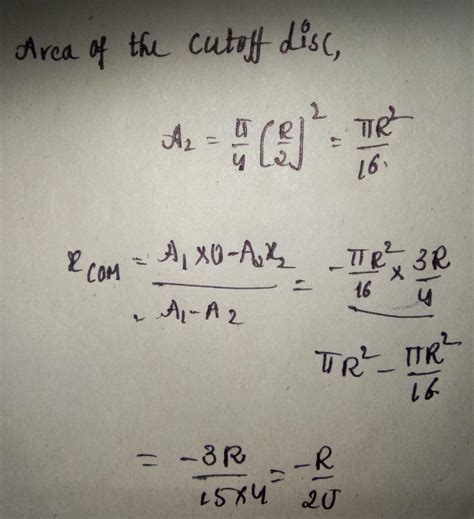 Area of the cutoff disc,
A₂ = π/4 (R/2)² = πR²/16.
x COM = A₁×0-A₂x₂ / A₁-A₂ = -πR²/16 × 3R/4 / πR² - πR²/16
= -3R/15×4 = -R/20